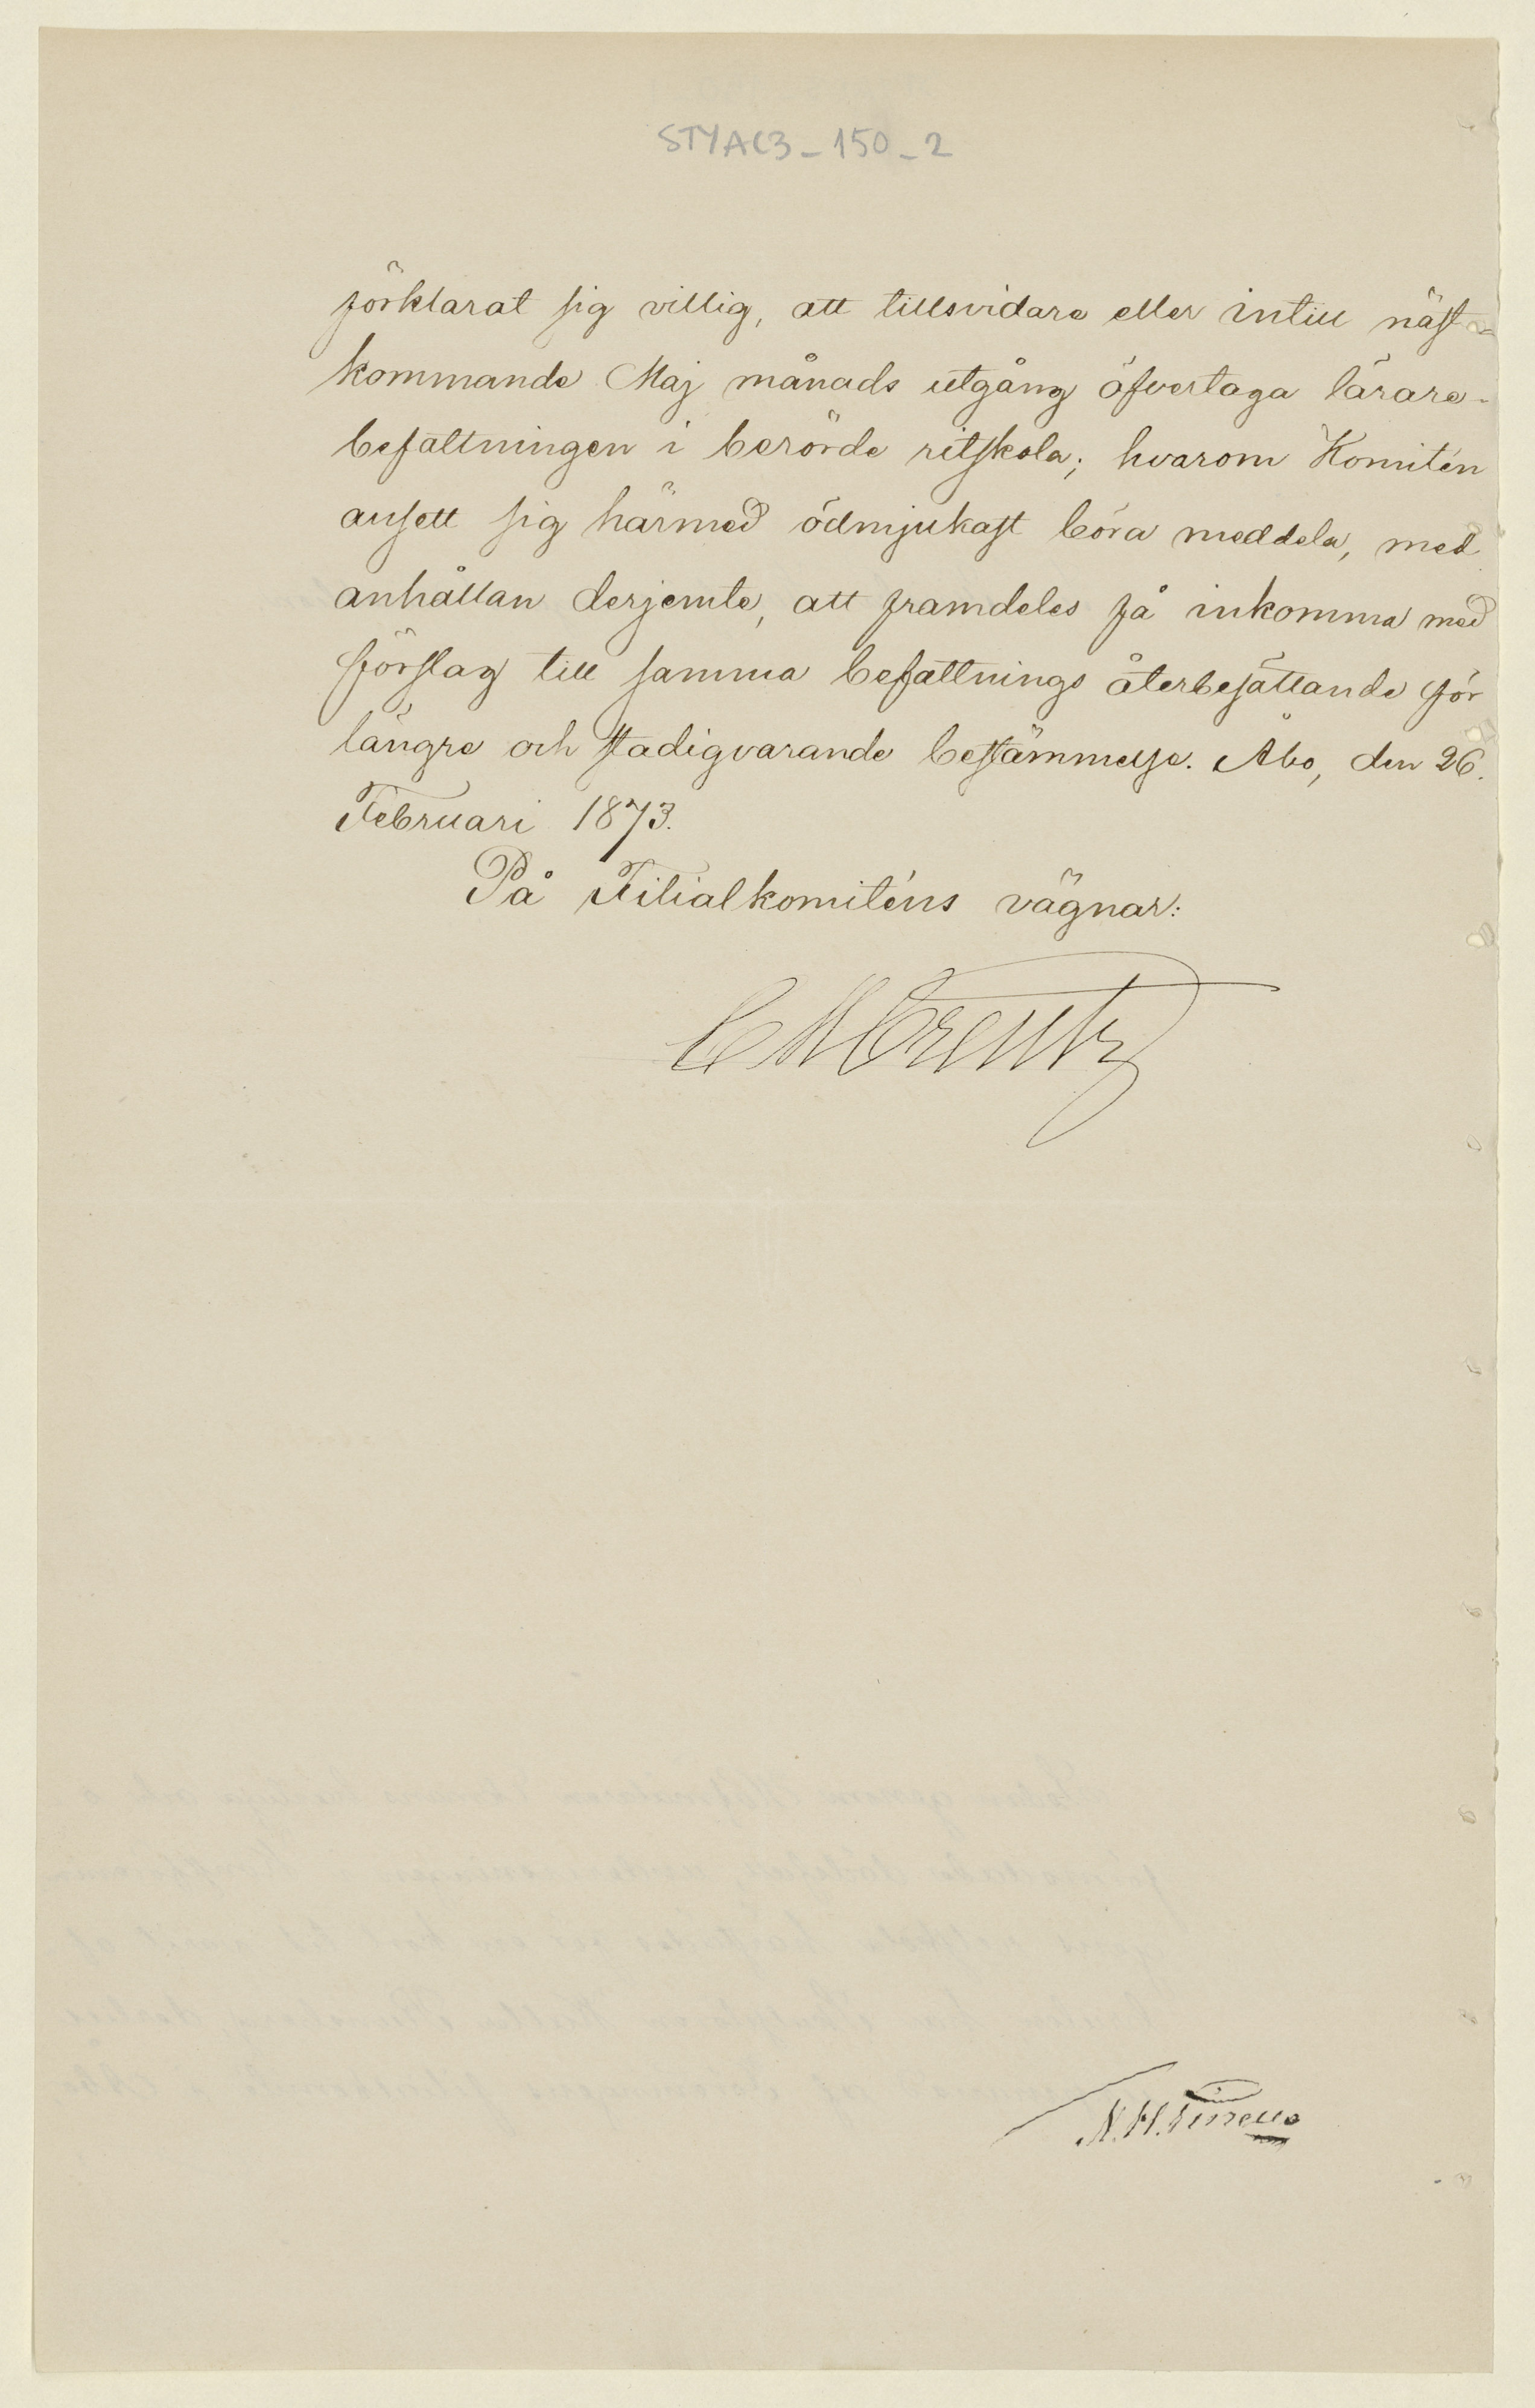 STYAC3_150_2
förklarat sig villig, att tillsvidare eller intill näst-
kommande Maj månads utgång öfvertaga lärare-
befattningen i berörde ritskola; hvarom Komitén
ansett sig härmed ödmjukast böra meddela, med
anhållan derjemte, att framdeles få inkomma med
förslag till samma befattnings återbesättande för
längre och stadigvarande bestämmelse. Åbo, den 26.
Februari 1873.
På Filialkomiténs vägnar:
C M Creutz
N. H.